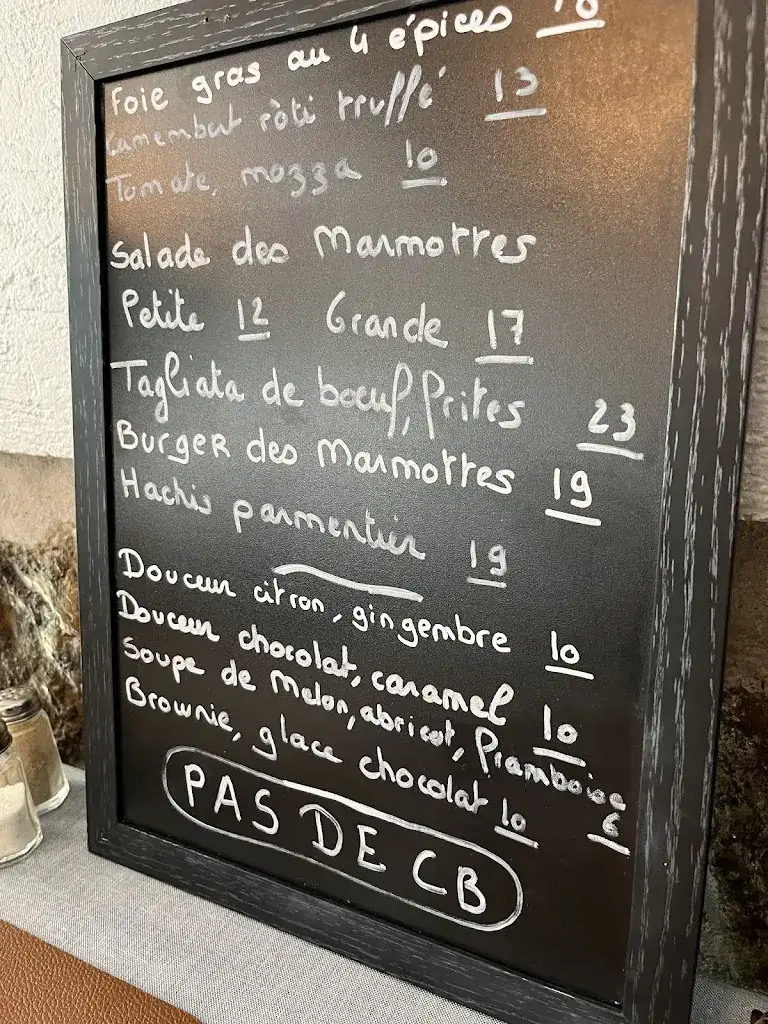 Foie gras au 4 épices
Camembert rôti truffé 13
Tomate, mozza 10
Salade des Marmottes
Petite 12 Grande 17
Tagliata de boeuf, frites 23
Burger des Marmottes 19
Hachis parmentier 19
Douceur citron, gingembre 10
Douceur chocolat, caramel 10
Soupe de Melon, abricot, framboise 6
Brownie, glace chocolat 10
PAS DE CB